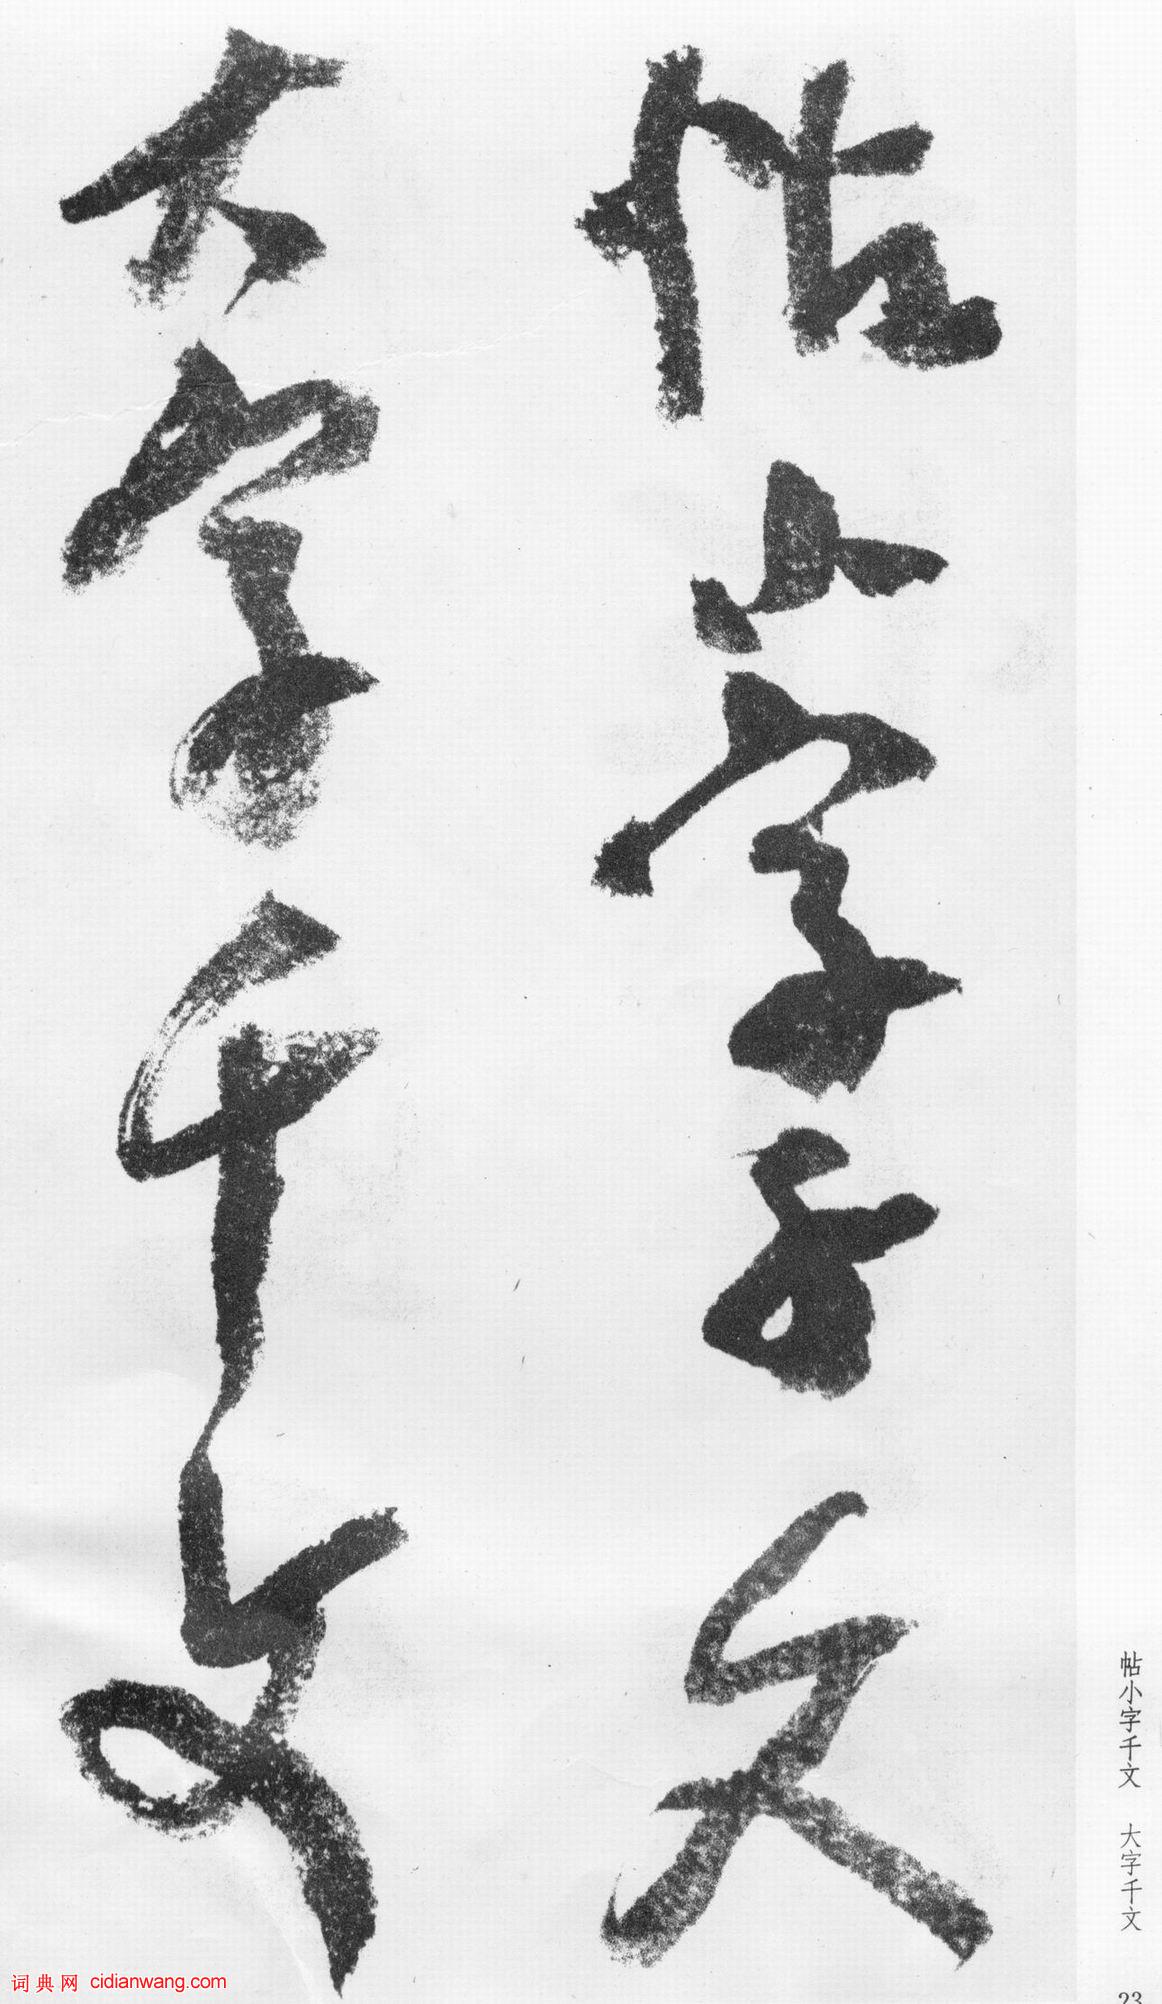 帖小字千文
大字千文
帖小字千文 大字千文
23
词典网 cidianwang.com